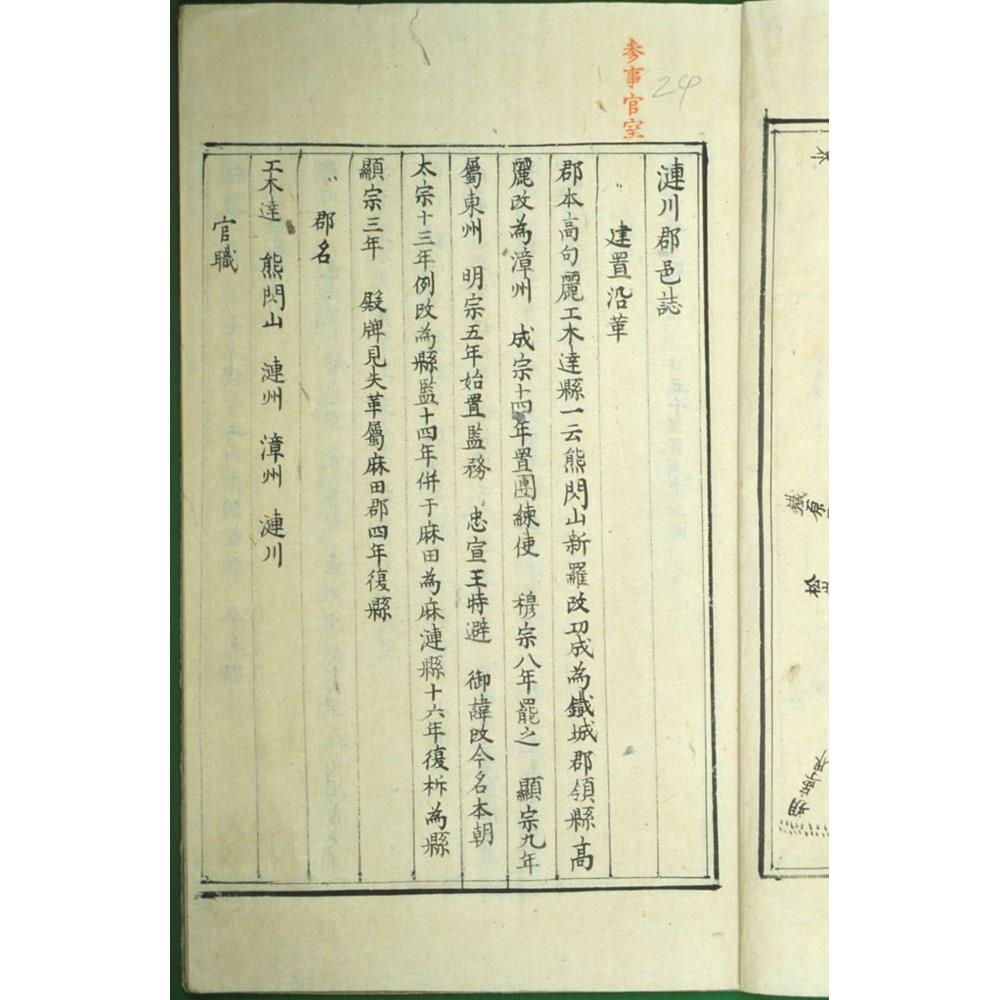 叅事官室
24
漣川郡邑誌
〃 建置沿革
郡本高句麗工木達縣一云熊閃山新羅改功成為鐵城郡領縣高
麗改為漳州 成宗十四年置團練使 穆宗八年罷之 顯宗九年
屬東州 明宗五年始置監務 忠宣王時避 御諱改今名本朝
太宗十三年例改為縣監十四年併于麻田為麻漣縣十六年復柝為縣
顯宗三年 殿牌見失革屬麻田郡四年復縣
〃 郡名
工木達 熊閃山 漣州 漳州 漣川
官職